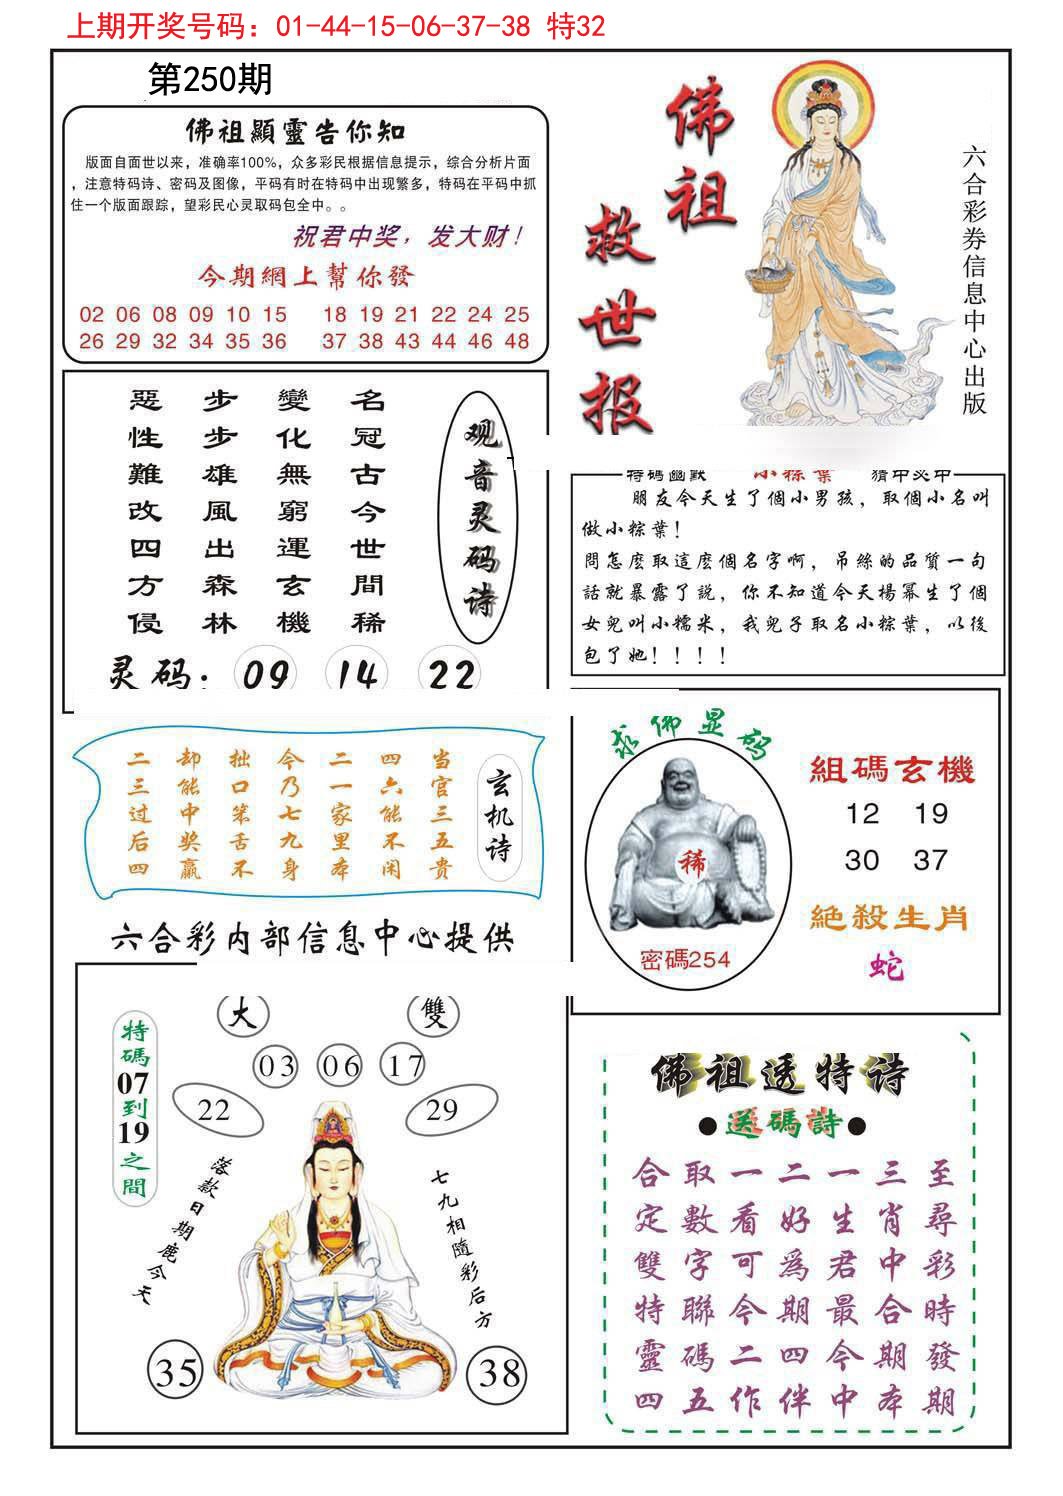 上期开奖号码：01-44-15-06-37-38 特32
第250期
佛祖顯靈告你知
版面自面世以来，准确率100%，众多彩民根据信息提示，综合分析片面
，注意特码诗、密码及图像，平码有时在特码中出现繁多，特码在平码中抓
住一个版面跟踪，望彩民心灵取码包全中。。
祝君中奖，发大财！
今期網上幫你發
02 06 08 09 10 15 18 19 21 22 24 25
26 29 32 34 35 36 37 38 43 44 46 48
佛祖救世报
六合彩券信息中心出版
观音灵码诗
名冠古今世間稀
變化無窮運玄機
步步雄風出森林
惡性難改四方侵
灵码：09 14 22
特碼幽默 小粽葉 猜中灵中
朋友今天生了個小男孩，取個小名叫
做小粽葉！
問怎麼取這麼個名字啊，吊絲的品質一句
話就暴露了説，你不知道今天楊冪生了個
女兒叫小糯米，我兒子取名小粽葉，以後
包了她！！！！
玄机诗
当官三五贵
四六能不闲
二一家里本
今乃七九身
拙口笨舌不
却能中奖赢
二三过后四
六合彩内部信息中心提供
求佛显码
稀
密碼254
組碼玄機
12 19
30 37
絕殺生肖
蛇
特碼07到19之間
大 雙
03 06 17
22 29
落款日期鹿今天
七九相隨彩后方
35 38
佛祖透特诗
●送碼詩●
至尋彩時發期
三肖中合期本
一生君最今中
二好為期四伴
一看可今二作
取數字聯碼五
合定雙特靈四